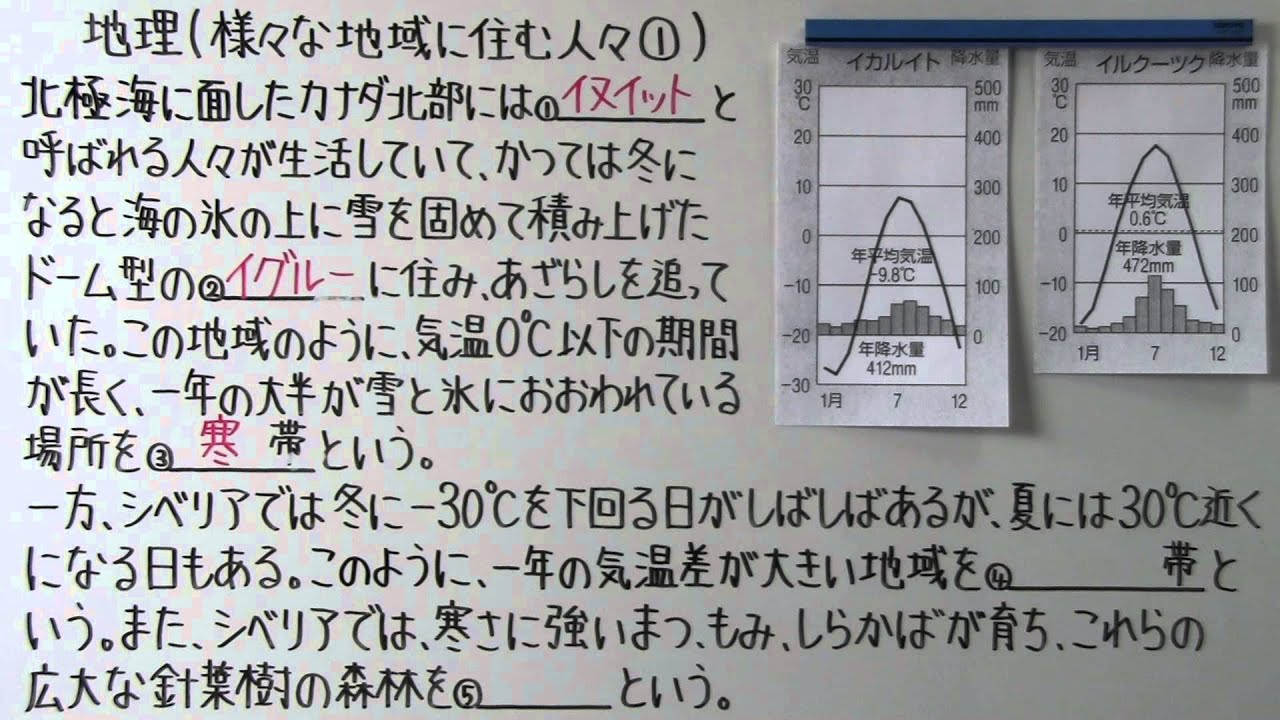 地理(様々な地域に住む人々①)
北極海に面したカナダ北部には①イヌイットと
呼ばれる人々が生活していて、かつては冬に
なると海の氷の上に雪を固めて積み上げた
ドーム型の②イグルーに住み、あざらしを追って
いた。この地域のように、気温0℃以下の期間
が長く、一年の大半が雪と氷におおわれている
場所を③寒帯という。
一方、シベリアでは冬に-30℃を下回る日がしばしばあるが、夏には30℃近く
になる日もある。このように、一年の気温差が大きい地域を④　　　帯と
いう。また、シベリアでは、寒さに強いまつ、もみ、しらかばが育ち、これらの
広大な針葉樹の森林を⑤　　　という。
気温 イカルイト 降水量
30 500
℃ mm
20 400
10 300
0 200
年平均気温
-9.8℃
-10 100
-20 0
年降水量
412mm
-30
1月 7 12
気温 イルクーツク 降水量
30 500
℃ mm
20 400
10 300
年平均気温
0.6℃
0 200
年降水量
472mm
-10 100
-20 0
1月 7 12